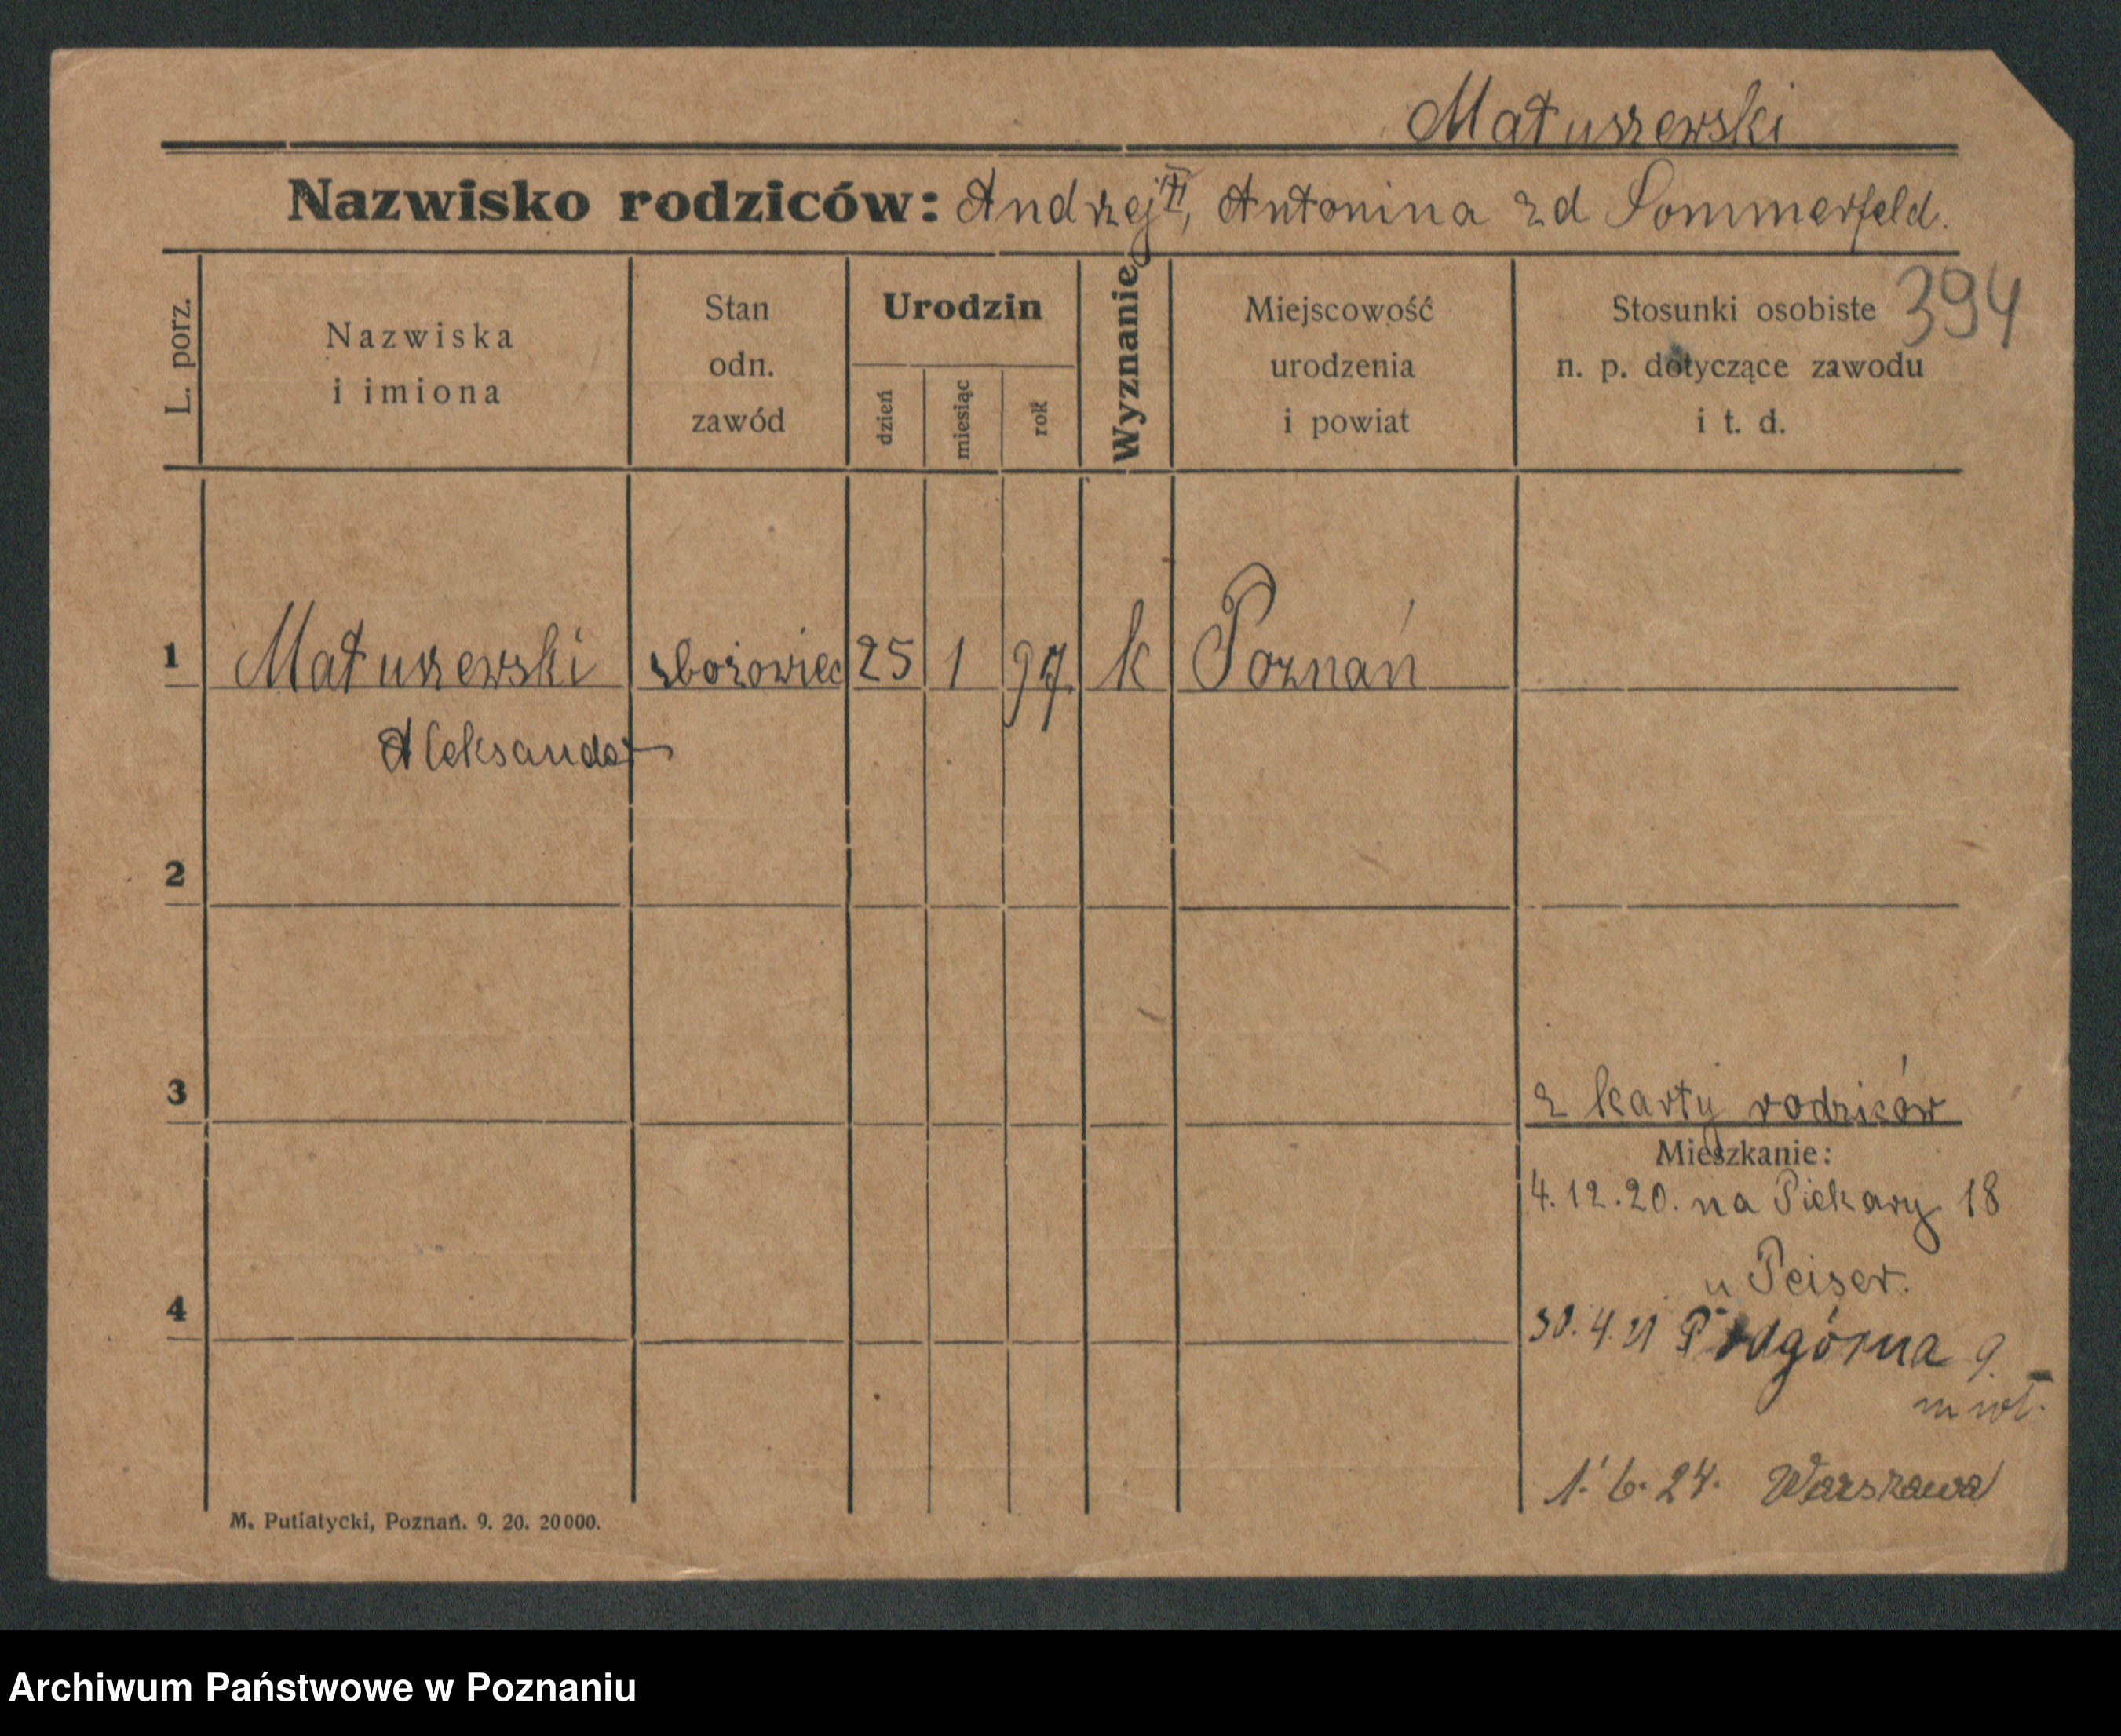 Matuszewski
Nazwisko rodziców: Andrzej II, Antonina zd Sommerfeld.
394
L. porz.
Nazwiska
i imiona
Stan
odn.
zawód
Urodzin
dzień
miesiąc
rok
Wyznanie
Miejscowość
urodzenia
i powiat
Stosunki osobiste
n. p. dotyczące zawodu
i t. d.
1 Matuszewski zbożowiec 25 1 97 k Poznań
Aleksander
2
3
z karty rodziców
Mieszkanie:
4.12.20. na Piekary 18
u Peiser.
4
30.4.21 Podgórna 9
1.6.24. Warszawa
M. Putiatycki, Poznań. 9. 20. 20000.
Archiwum Państwowe w Poznaniu